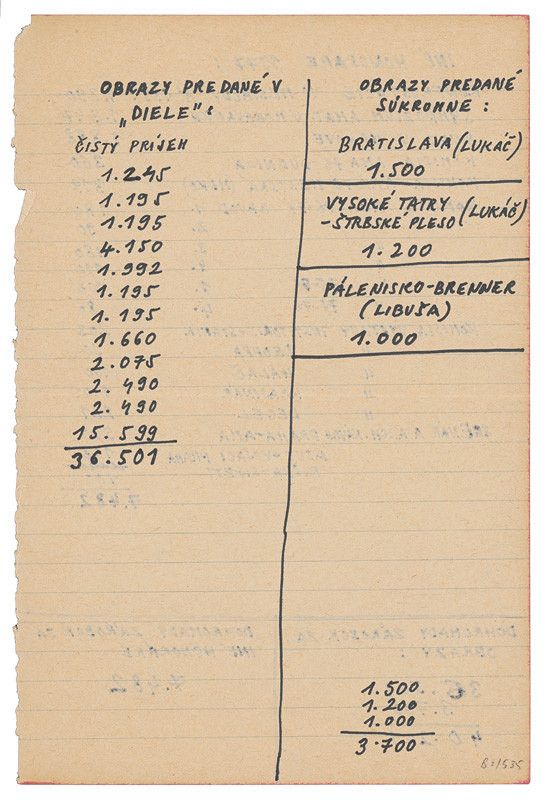 OBRAZY PREDANÉ V
„DIELE":
ČISTÝ PRÍJEM
1.245
1.195
1.195
4.150
1.992
1.195
1.195
1.660
2.075
2.490
2.490
15.599
36.501
OBRAZY PREDANÉ
SÚKROMNE:
BRATISLAVA (LUKÁČ)
1.500
VYSOKÉ TATRY
-ŠTRBSKÉ PLESO (LUKÁČ)
1.200
PÁLENISKO-BRENNER
(LIBUŠA)
1.000
1.500
1.200
1.000
3.700